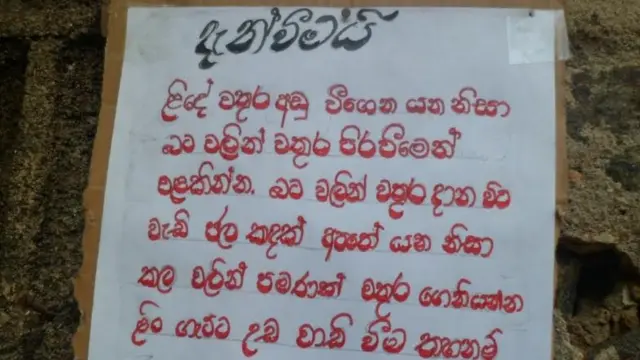 දැන්වීමයි
ළිදේ වතුර අඩු වීගෙන යන නිසා
බට වලින් වතුර පිරවීමෙන්
වළකින්න. බට වලින් වතුර දාන විට
වැඩි ජල කදක් අපතේ යන නිසා
කල වලින් පමණක් වතුර ගෙනියන්න
ළිං ගැට්ට උඩ වාඩි වීම තහනම්